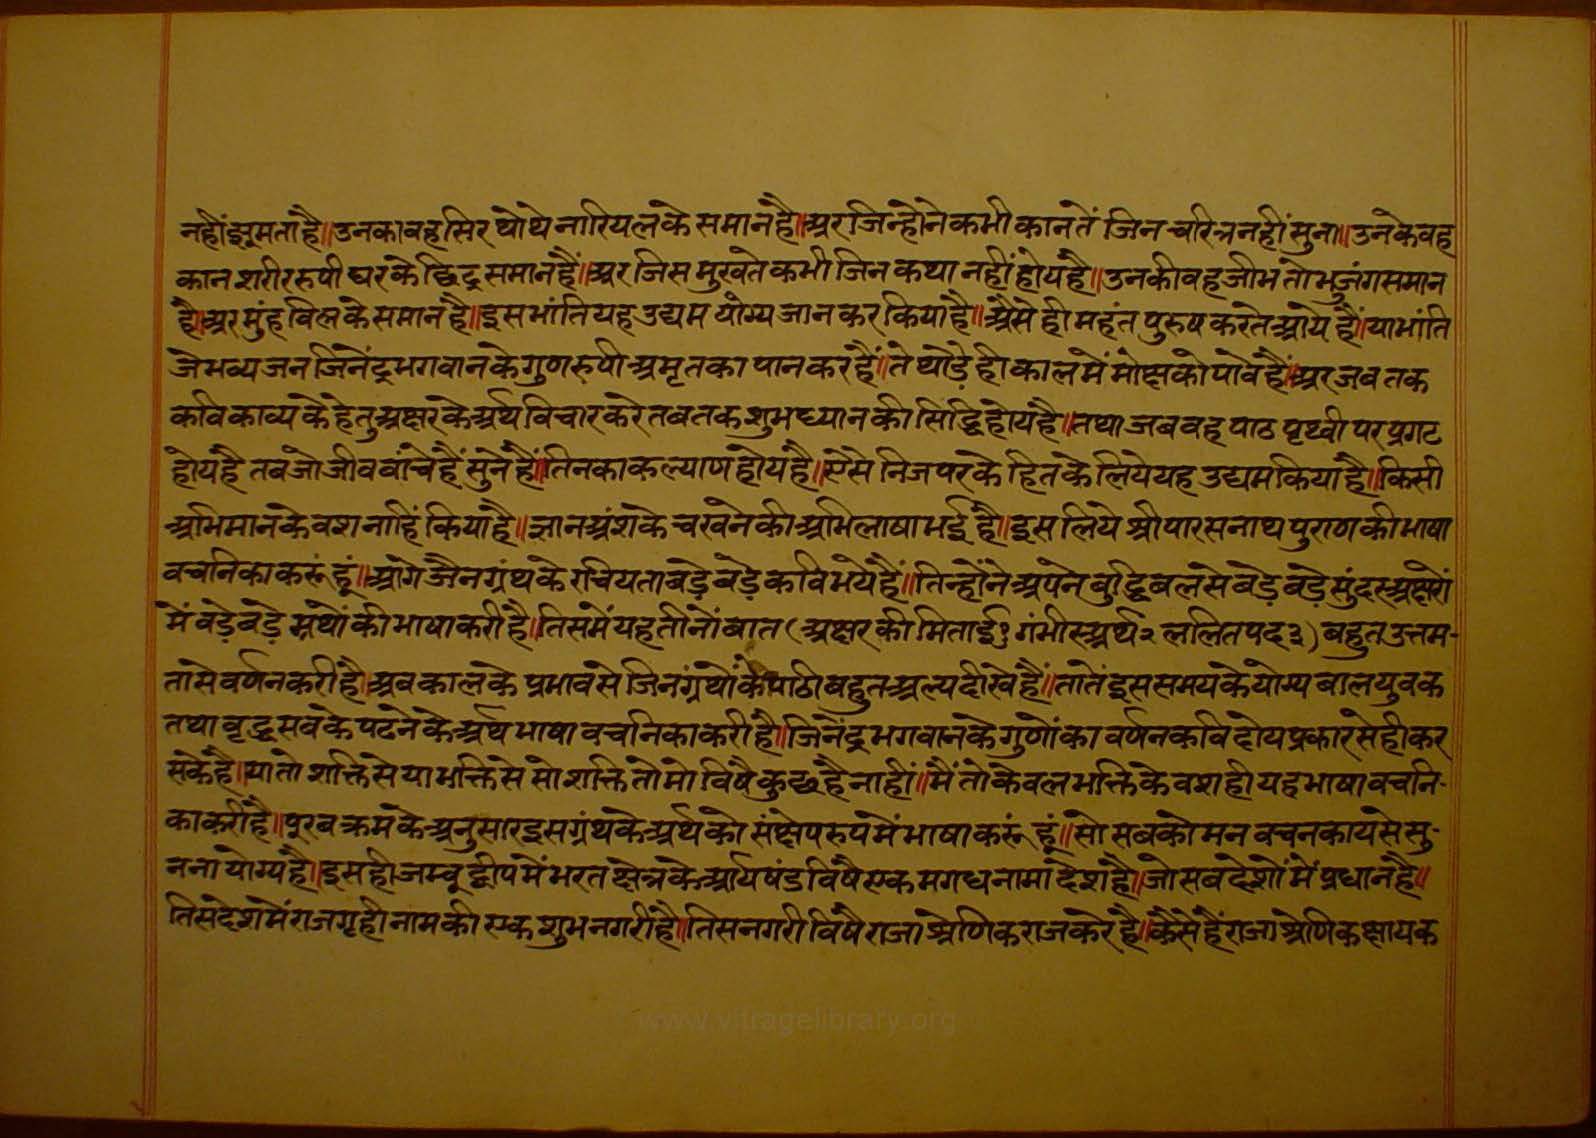 नहीं झूमता है॥ उनका वह सिर थोथे नारियल के समान है॥ अर जिन्होने कभी कान तें जिन चरित्र नहीं सुना॥ उनके वह
कान शरीर रुपी घर के छिद्र समान हैं॥ अर जिस मुखते कभी जिन कथा नहीं होय है॥ उनकी वह जीभ तो भुजंग समान
है॥ अर मुंह विल के समान है॥ इस भांति यह उद्यम योग्य जान कर किया है॥ अैसे ही महंत पुरुष करते आये हैं॥ या भांति
जे भव्य जन जिनेंद्र भगवान के गुण रुपी अमृत का पान कर हैं॥ ते थोडे़ ही काल में मोक्ष को पावे हैं॥ अर जब तक
कवि काव्य के हेतु अक्षर के अर्थ विचार करे तब तक शुभ ध्यान की सिद्धि होय है॥ तथा जब वह पाठ पृथ्वी पर प्रगट
होय है तब जो जीव बांचे हैं सुने हैं॥ तिनका कल्याण होय है॥ एसे निज पर के हित के लिये यह उद्यम किया है॥ किसी
अभिमान के वश नाहिं किया है॥ ज्ञान अंश के चखने की अभिलाषा भई है॥ इस लिये श्री पारसनाथ पुराण की भाषा
वचनिका करूं हूं॥ आगे जैन ग्रंथ के रचियता बडे़ बडे़ कवि भये हैं॥ तिन्होंने अपने बुद्धि बल से बडे़ बडे़ सुंदर अक्षरों
में वडे़ बडे़ ग्रथों की भाषा करी है॥ तिसमें यह तीनों बात (अक्षर की मिताई१ गंभीर अर्थ२ ललित पद३) बहुत उत्तम-
ता से वर्णन करी है॥ अब काल के प्रभाव से जिन ग्रंथों के पाठी बहुत अल्प दीखे हैं॥ तातें इस समय के योग्य बाल युवक
तथा वृद्ध सब के पढने के अर्थ भाषा वचनिका करी है॥ जिनेंद्र भगवान के गुणों का वर्णन कवि दोय प्रकार से ही कर
सके है॥ या तो शक्ति से या भक्ति से सो शक्ति तो मो विषै कुछ है नाहीं॥ मैं तो केवल भक्ति के वश ही यह भाषा वचनि-
का करी है॥ पूरब क्रम के अनुसार इस ग्रंथ के अर्थ को संक्षेप रुप में भाषा करूं हूं॥ सो सब को मन वचन काय से सु-
नना योग्य है॥ इस ही जम्बू द्वीप में भरत क्षेत्र के आर्य षंड विषै एक मगध नामा देश है॥ जो सब देशों में प्रधान है॥
तिस देश में राजगृही नाम की एक शुभ नगरी है॥ तिस नगरी विषै राजा श्रेणिक राज करे है॥ कैसे हैं राजा श्रेणिक क्षायक
www.vitragelibrary.org